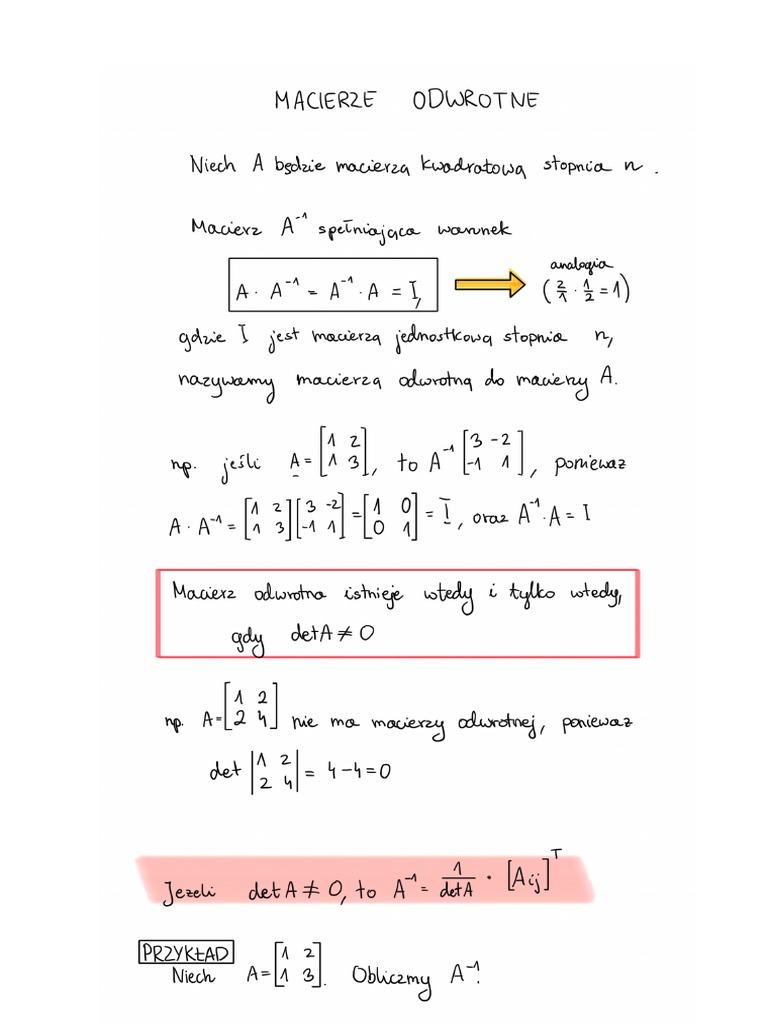 MACIERZE ODWROTNE
Niech A będzie macierzą kwadratową stopnia n.
Macierz A⁻¹ spełniająca warunek
A · A⁻¹ = A⁻¹ · A = I,
analogia
(2/1 · 1/2 = 1)
gdzie I jest macierzą jednostkową stopnia n,
nazywamy macierzą odwrotną do macierzy A.
np. jeśli A = [1 2; 1 3], to A⁻¹ [3 -2; -1 1], ponieważ
A · A⁻¹ = [1 2; 1 3] [3 -2; -1 1] = [1 0; 0 1] = I, oraz A⁻¹ · A = I
Macierz odwrotna istnieje wtedy i tylko wtedy,
gdy det A ≠ 0
np. A = [1 2; 2 4] nie ma macierzy odwrotnej, ponieważ
det |1 2; 2 4| = 4 - 4 = 0
Jeżeli det A ≠ 0, to A⁻¹ = 1/det A · [Aij]ᵀ
PRZYKŁAD
Niech A = [1 2; 1 3]. Obliczmy A⁻¹.